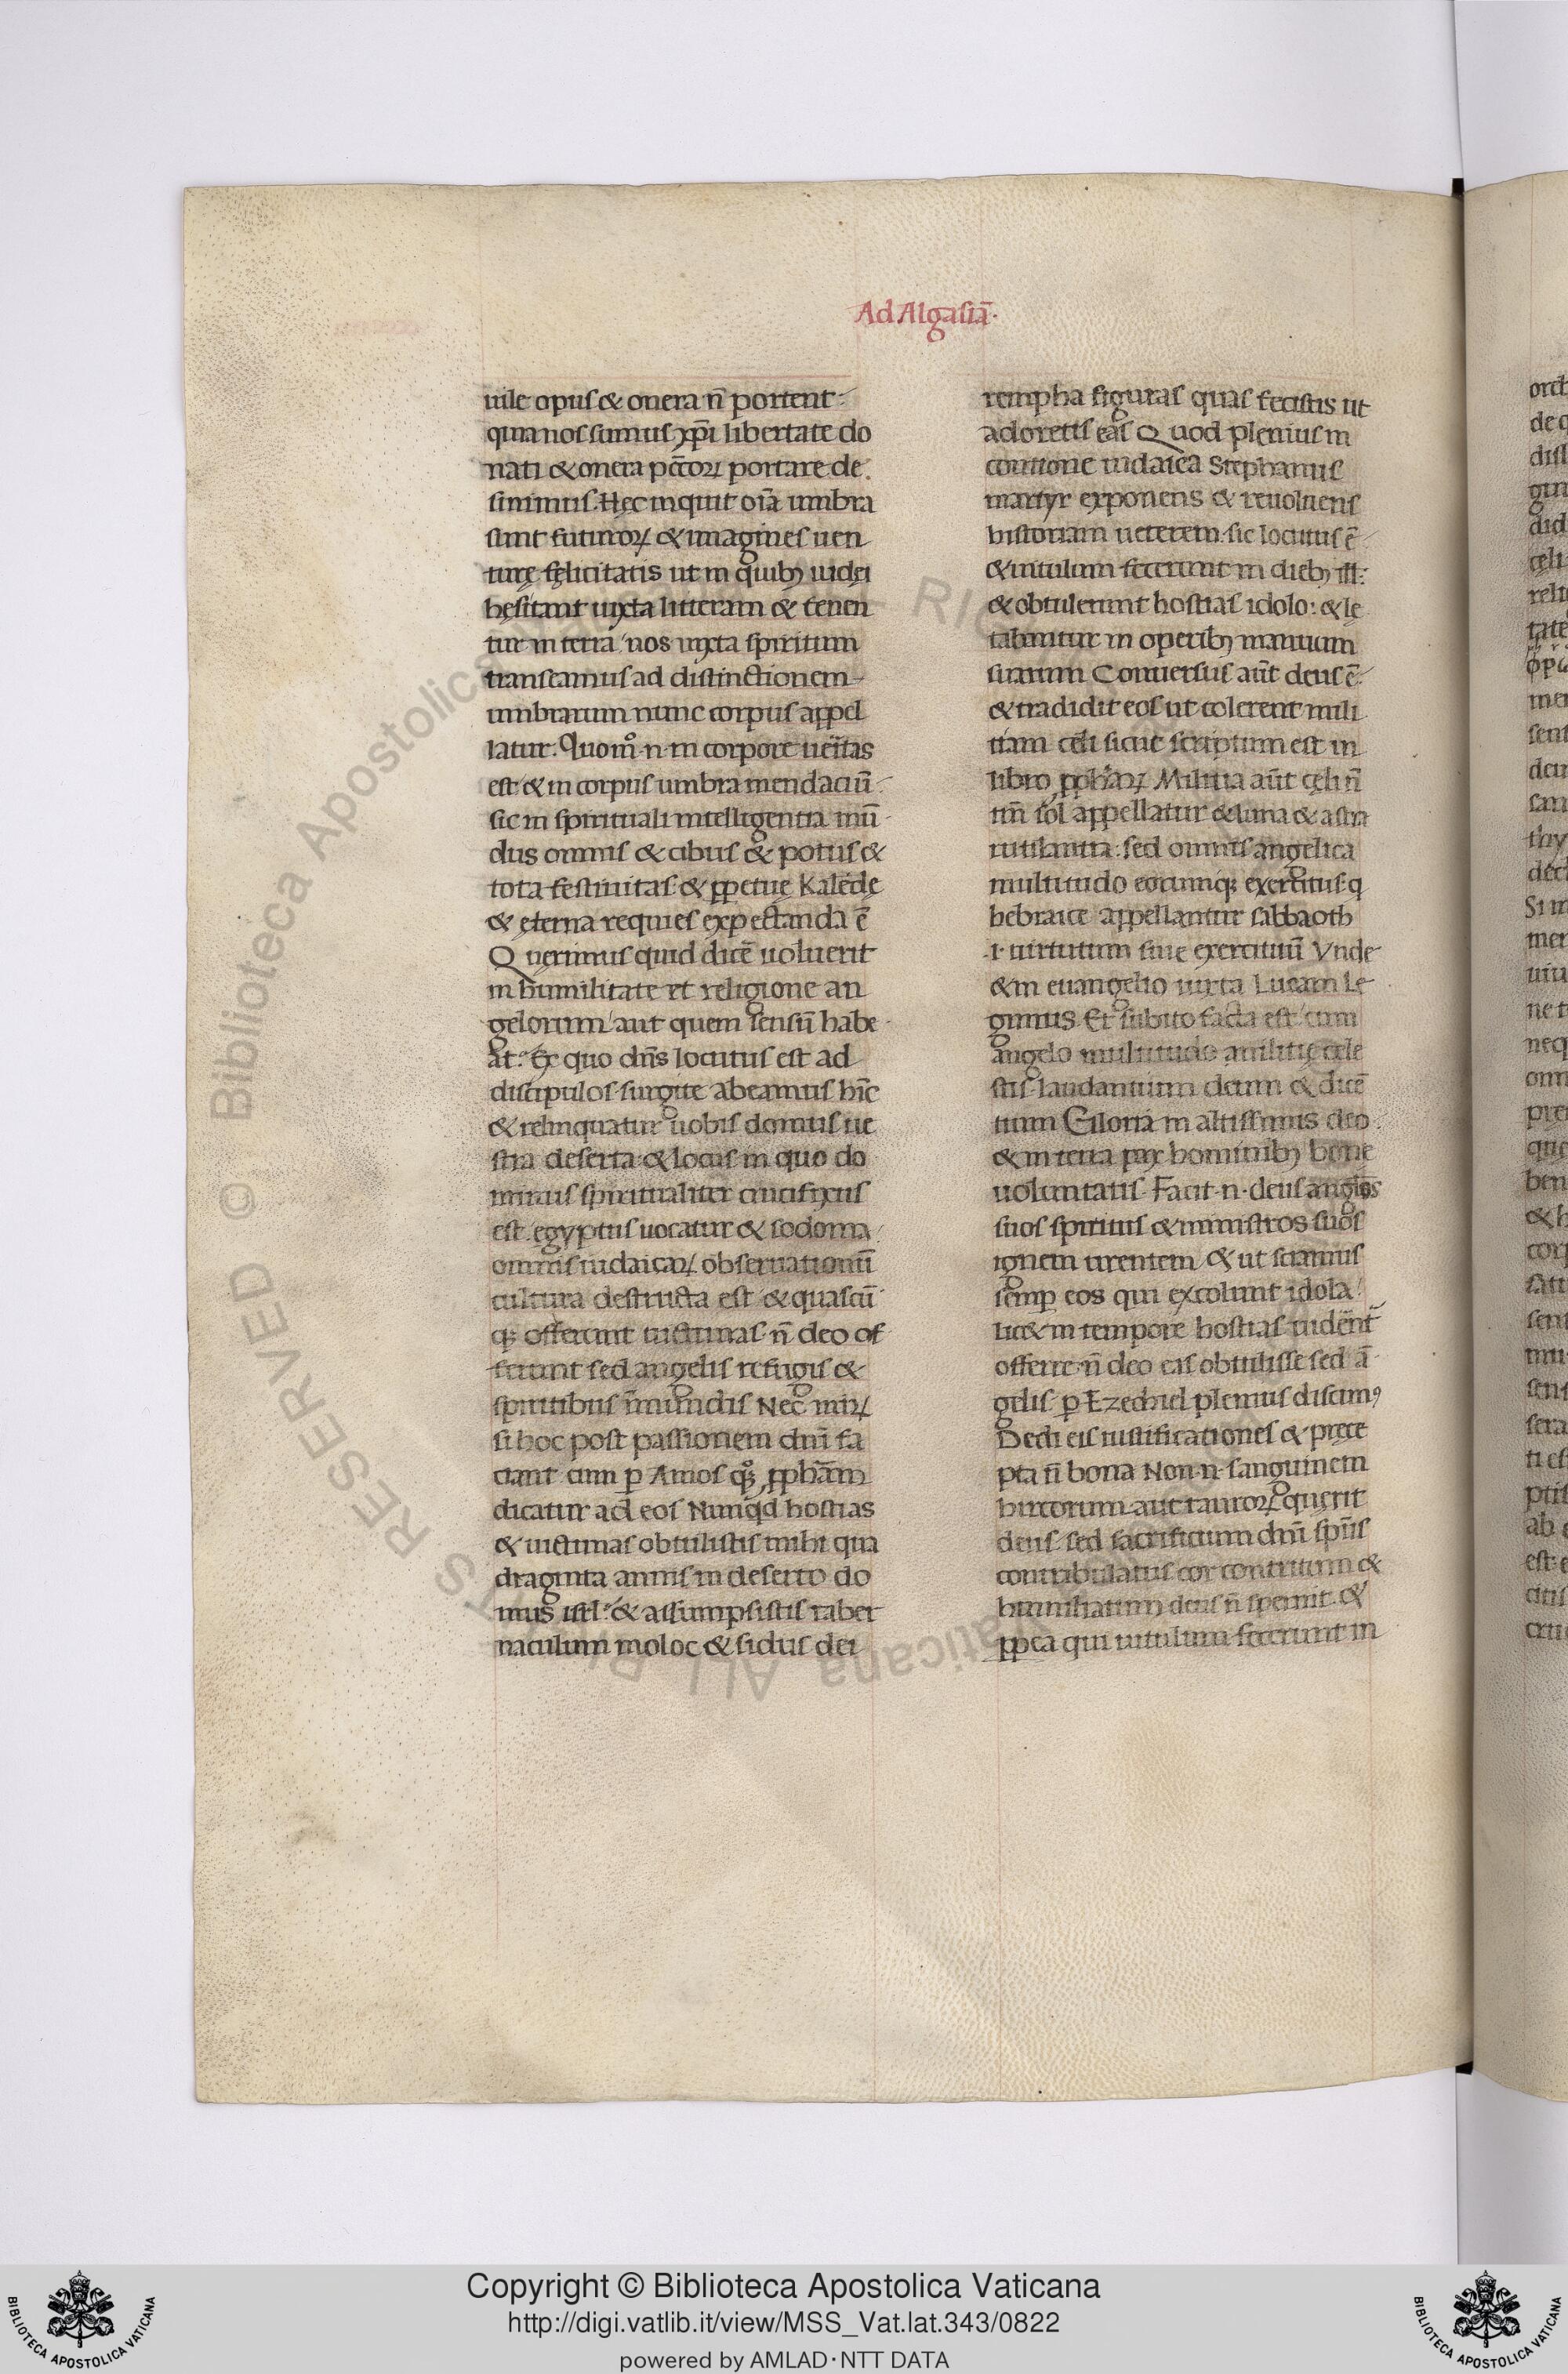 Ad Algasiā·
uile opus & onera n̄ portent
quia nos sumus xp̄i libertate do
nati & onera pc̄toꝝ portare de
siuimus. Hęc inquit oīa umbra
sunt futuroꝝ & imagines uen
turę fęlicitatis ut in quibꝫ iudęi
hęsitant iuxta litteram & tenen
tur in terra nos iuxta spiritum
transeamus ad distinctionem
umbrarum nunc corpus appel
latur. Quom̊ ·n· in corpore ueritas
est & in corpus umbra mendaciū
sic in spirituali intelligentia mū
dus omnis & cibus & potus &
tota festiuitas & ꝑpetuę Kalēdę
& ęterna requies expectanda ē
Quęrimus quid dicē uoluerit
in humilitate et religione an
gelorum aut quem sensū habe
at. Ex quo dn̄s locutus est ad
discipulos surgite abeamus hīc
& relinquatur uobis domus ue
stra deserta & locus in quo do
minus spiritualiter crucifixus
est egyptus uocatur & sodoma
omnis iudaicaꝝ obseruationū
cultura destructa est & quascū
qꝫ offerunt uictimas n̄ deo of
ferunt sed angelis refugis &
spiritibus īmundis Nec miꝝ
si hoc post passionem dnī fa
ciant cum ꝑ Amos qꝫ ꝓpham̄
dicatur ad eos Nunqd hostias
& uictimas obtulistis mihi qua
draginta annis in deserto do
mus isrl̄ & assumpsistis taber
naculum moloc & sidus dei
rempha figuras quas fecistis ut
adoretis eas Quod plenius in
contione iudaica Stephanus
martyr exponens & reuoluens
historiam ueterem sic locutus ē
& uitulum fecerunt in diebꝫ ill̄
& obtulerunt hostias idolo: & lę
tabantur in operibꝫ manuum
suarum Conuersus aūt deus ē
& tradidit eos ut colerent mili
tiam cęli sicut scriptum est in
libro ꝓphaꝝ Militia aūt cęli n̄
tm̄ sol appellatur & luna & astra
rutilantia sed omnis angelica
multitudo eorumqꝫ exercitus q
hebraice appellantur sabbaoth
·i· uirtutum siue exercituū Vnde
& in euangelio iuxta Lucam le
gimus Et subito facta est cum
angelo multitudo militię cęle
stis laudantium deum & dicē
tium Gloria in altissimis deo
& in terra pax hominibꝫ bone
uoluntatis. Facit ·n· deus anglos
suos spiritus & ministros suos
ignem urentem & ut sciamus
semꝑ eos qui excolunt idola
lic& in tempore hostias uident̄
offerre n̄ deo eis obtulisse sed ā
gelis ꝑ Ezechiel plenius discimꝰ
Dedi eis iustificationes & pręce
pta n̄ bona Non ·n· sanguinem
hircorum aut tauroꝝ quęrit
deus sed sacrificium dnī spūs
contribulatus cor contritum &
humiliatum deus n̄ spernit &
ꝓpea qui uitulum fecerunt in
Copyright © Biblioteca Apostolica Vaticana
http://digi.vatlib.it/view/MSS_Vat.lat.343/0822
powered by AMLAD·NTT DATA
BIBLIOTECA APOSTOLICA VATICANA
BIBLIOTECA APOSTOLICA VATICANA